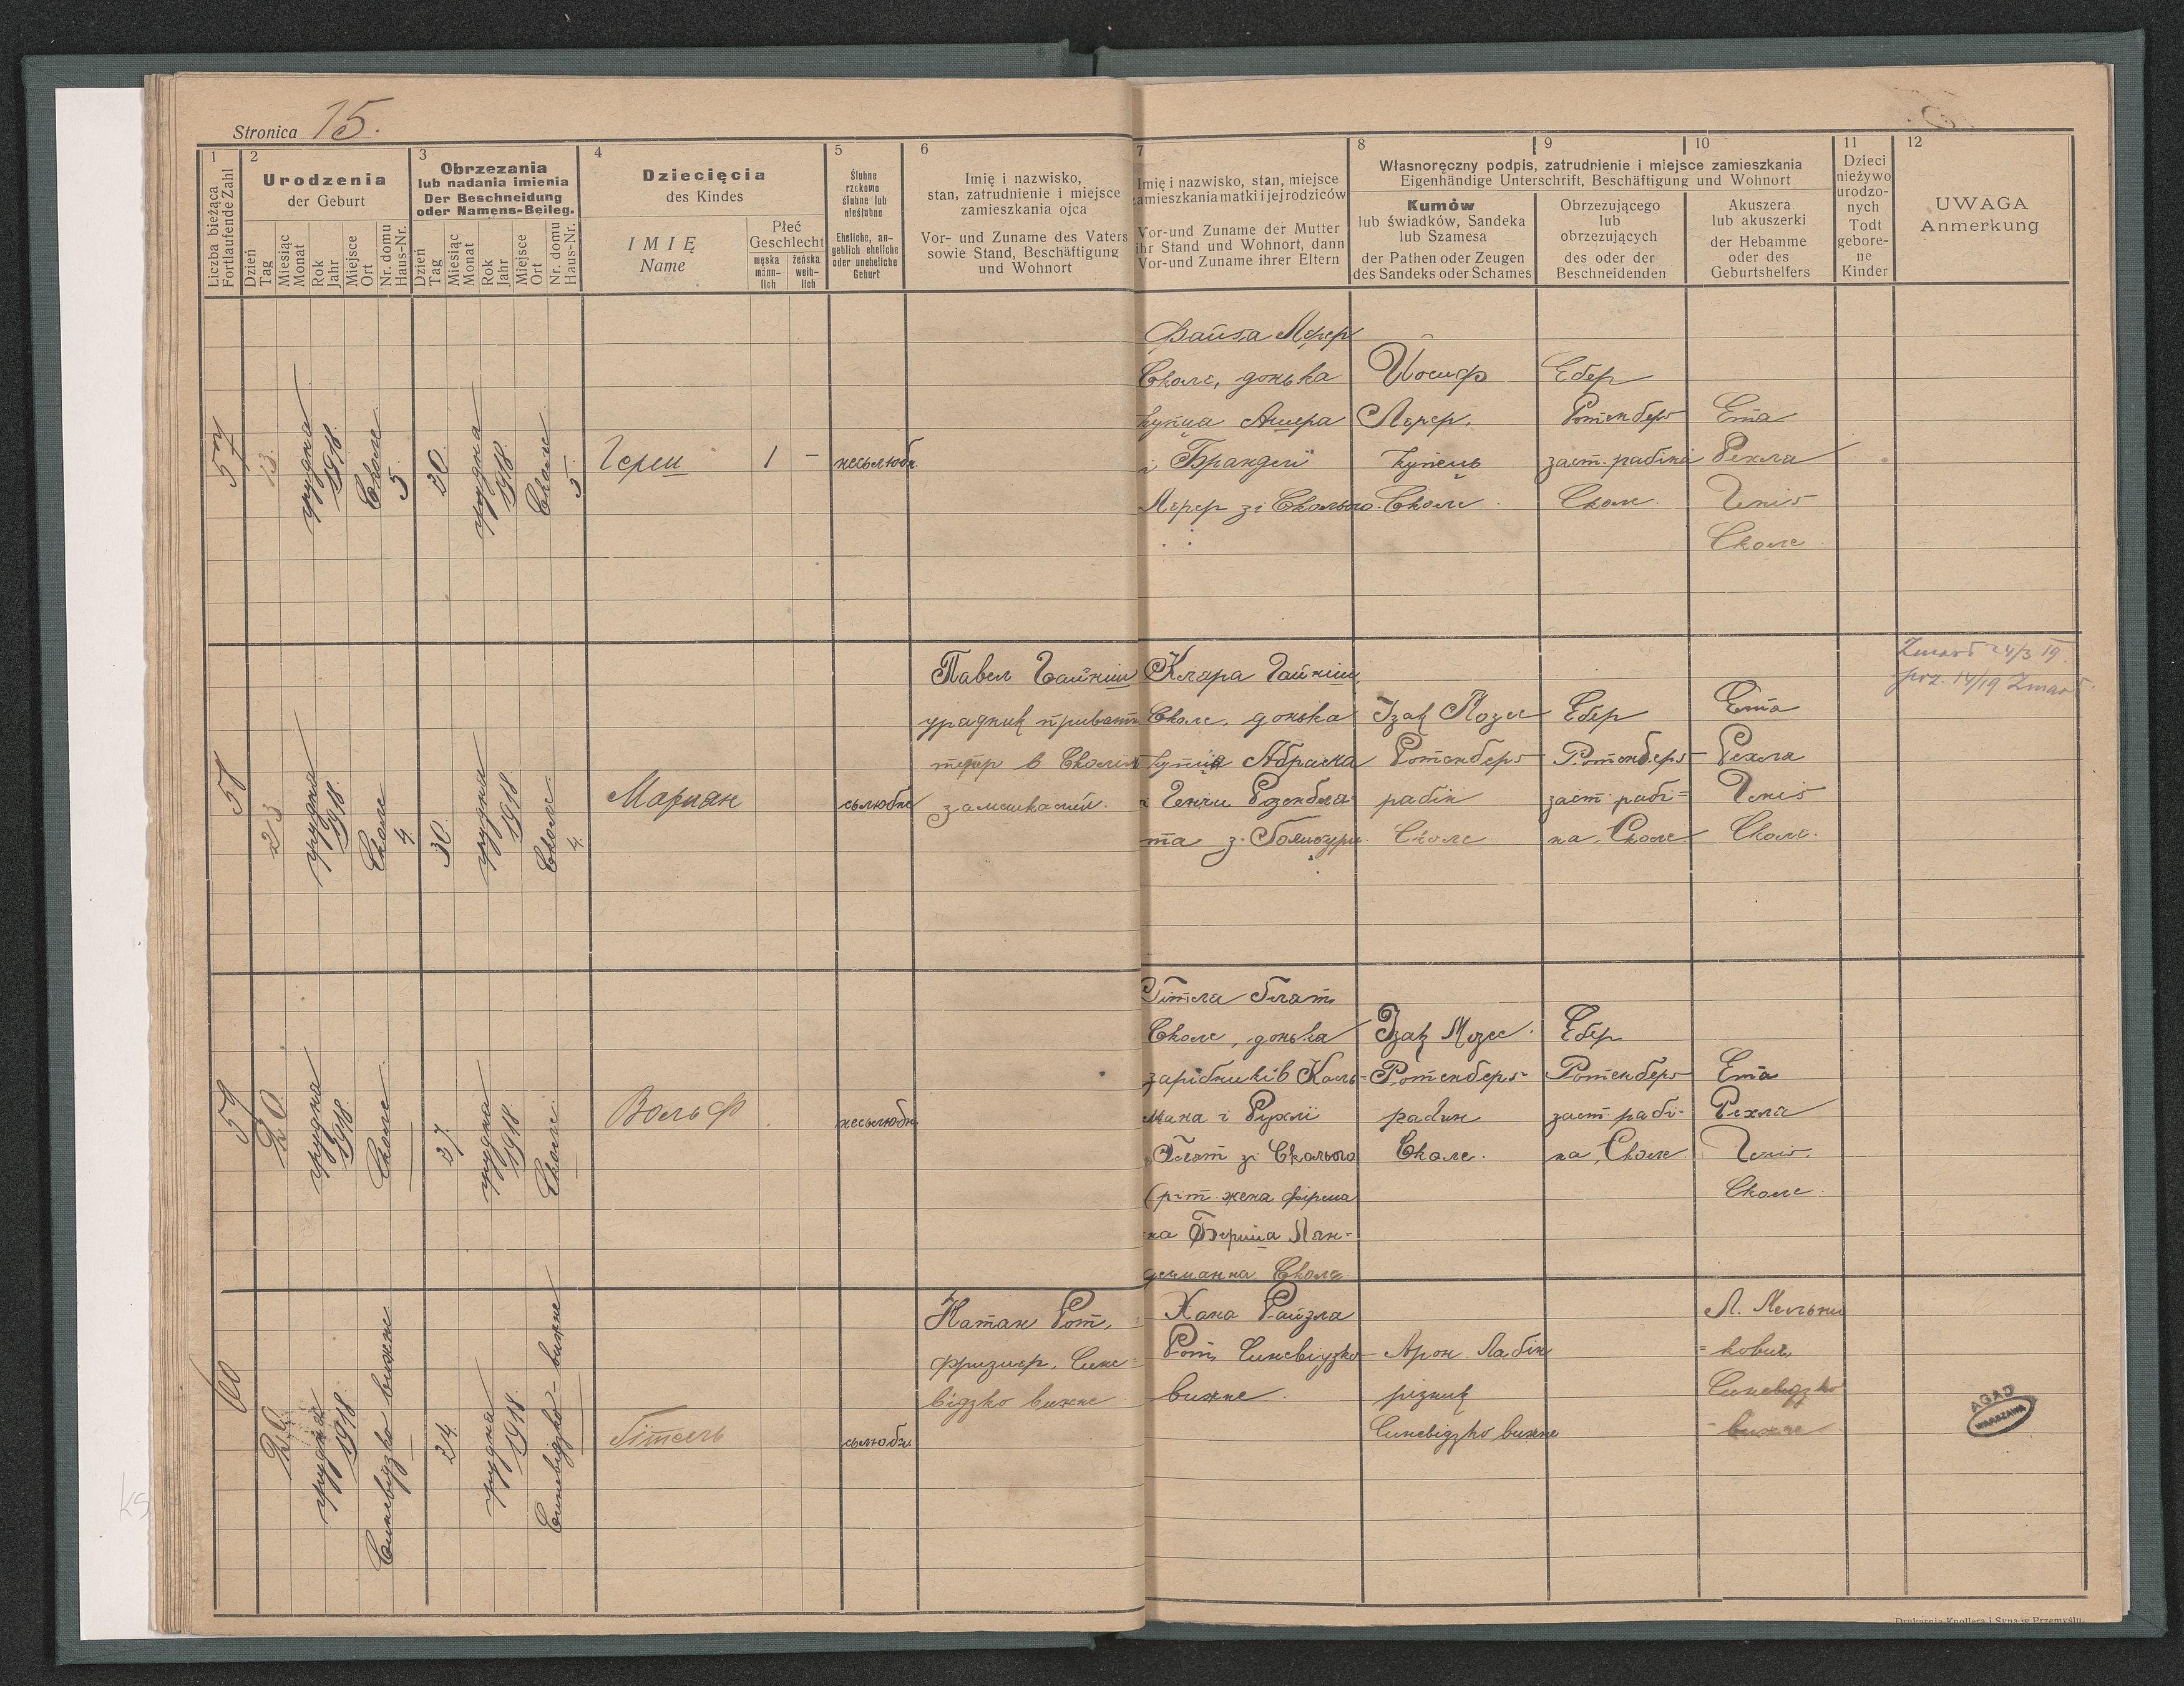 Stronica 15.
1
Liczba bieżąca
Fortlaufende Zahl
2
Urodzenia
der Geburt
Dzień
Tag
Miesiąc
Monat
Rok
Jahr
Miejsce
Ort
Nr. domu
Haus-Nr.
3
Obrzezania
lub nadania imienia
Der Beschneidung
oder Namens-Beileg.
Dzień
Tag
Miesiąc
Monat
Rok
Jahr
Miejsce
Ort
Nr. domu
Haus-Nr.
4
Dziecięcia
des Kindes
IMIĘ
Name
Płeć
Geschlecht
męska
männ-
lich
żeńska
weib-
lich
5
Ślubne
rzekomo
ślubne lub
nieślubne
Eheliche, an-
geblich eheliche
oder uneheliche
Geburt
6
Imię i nazwisko,
stan, zatrudnienie i miejsce
zamieszkania ojca
Vor- und Zuname des Vaters
sowie Stand, Beschäftigung
und Wohnort
7
Imię i nazwisko, stan, miejsce
zamieszkania matki i jej rodziców
Vor-und Zuname der Mutter
ihr Stand und Wohnort, dann
Vor-und Zuname ihrer Eltern
8
9
10
Własnoręczny podpis, zatrudnienie i miejsce zamieszkania
Eigenhändige Unterschrift, Beschäftigung und Wohnort
Kumów
lub świadków, Sandeka
lub Szamesa
der Pathen oder Zeugen
des Sandeks oder Schames
Obrzezującego
lub
obrzezujących
des oder der
Beschneidenden
Akuszera
lub akuszerki
der Hebamme
oder des
Geburtshelfers
11
Dzieci
nieżywo
urodzo-
nych
Todt
gebore-
ne
Kinder
12
UWAGA
Anmerkung
57
13.
грудня
1918.
Сколе
5
20.
грудня
1918.
Сколе
5
Герш
1
-
несьлюбн
Файга Лєрер
Сколе, донька
купця Ашера
і Брандлї
Лєрер зі Сколього.
Йосиф
Лєрер.
купець
Сколе.
Ебер
Ротенберг
заст. рабіна
Сколе.
Ета
Рехля
Сколе
58
23
грудня
1918.
Сколе
4
30.
грудня
1918
Сколе
4.
Мариан
сьлюбне
Павел Гайніш
урядник приватн
тепер в Сколїм
замешкалий.
Клара Гайніш,
Сколе, донька
купця Абрама
і Генци Розенбля-
та з
Ізак Мозес
Ротенберг
рабін
Сколе
Ебер
Ротенберг
заст. рабі=
на, Сколе
Ета
Рехля
Сколе.
Zmarł 24/3 19.
poz. 14/19 Zmarł.
59
20.
грудня
1918.
Сколе
27.
грудня
1918.
Сколе.
Вольф
несьлюбн
Гітля Глят
Сколе, донька
зарібників Каль-
мана і Рухлї
Глят зі Сколього
жена фірма
на Берша Лян-
дсманна Сколе.
Ізак Мозес.
Ротенберг
рабин
Сколе.
Ебер
Ротенберг
заст. рабі-
на, Сколе.
Ета
Рехля
Сколе
60
грудня
1918.
Синевідзко вижне
24.
грудня
1918.
Синевідзко-вижне
Гітель
сьлюбн.
Натан Рот,
фризиєр, Сине-
відзко вижне
Хана Райзля
Рот, Синевідзко
вижне.
Арон Лабін
різник
Синевідзко вижне
Л. Мельни
=кович,
Синевідзко
- вижне
AGAD
WARSZAWA
Drukarnia Knollera i Syna w Przemyślu.